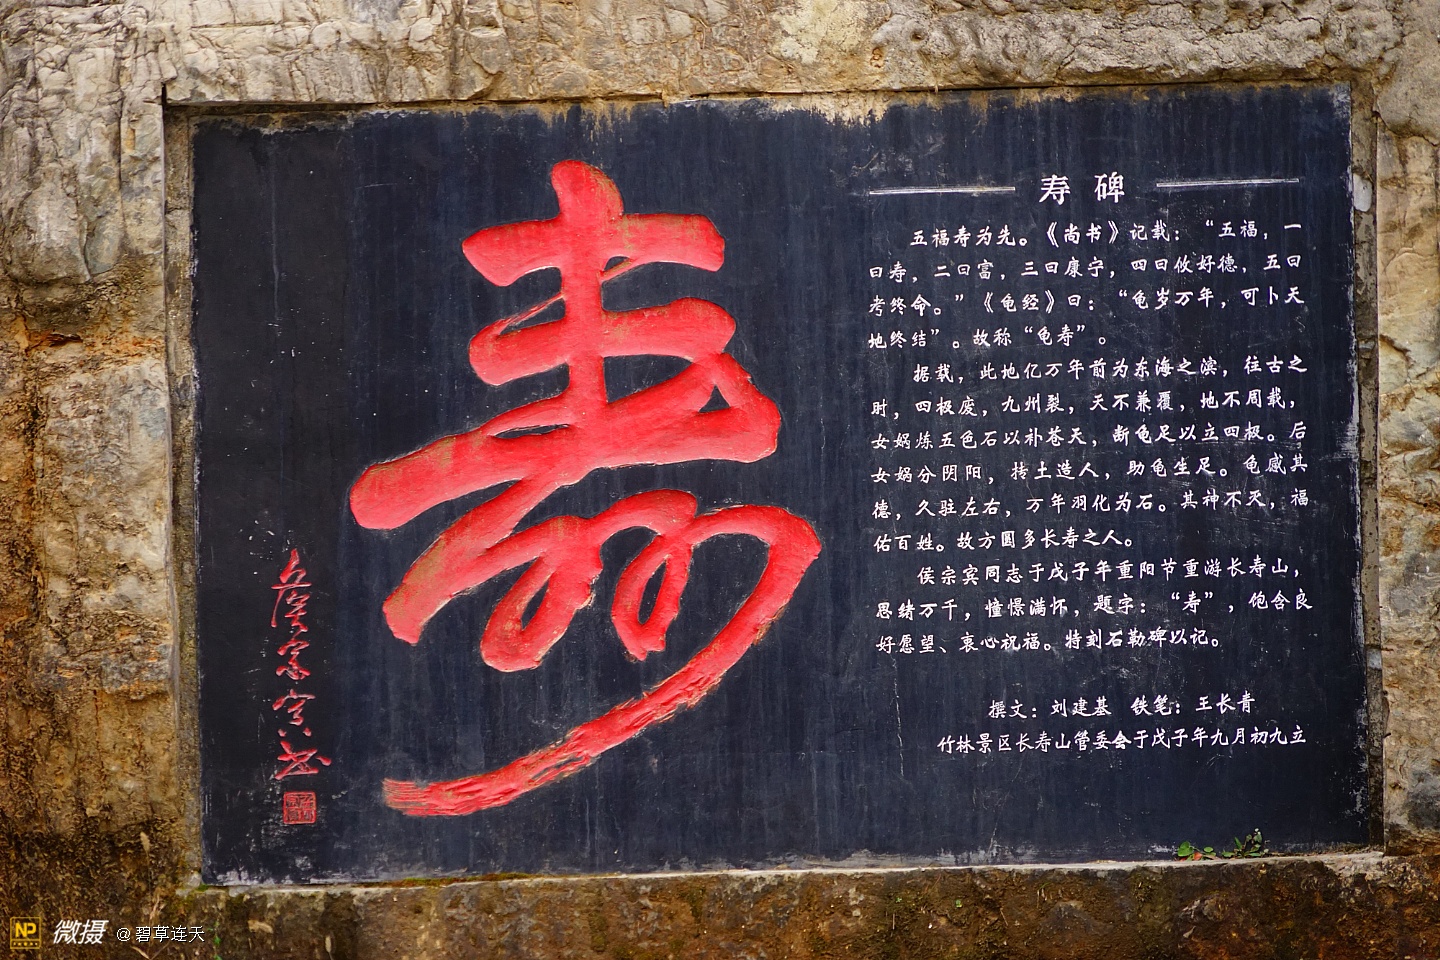 寿
侯宗宾书
寿碑
五福寿为先。《尚书》记载：“五福，一
曰寿，二曰富，三曰康宁，四曰攸好德，五曰
考终命。”《龟经》曰：“龟岁万年，可卜天
地终结”。故称“龟寿”。
据载，此地亿万年前为东海之滨，往古之
时，四极废，九州裂，天不兼覆，地不周载，
女娲炼五色石以补苍天，断龟足以立四极。后
女娲分阴阳，抟土造人，助龟生足。龟感其
德，久驻左右，万年羽化为石。其神不灭，福
佑百姓。故方圆多长寿之人。
侯宗宾同志于戊子年重阳节重游长寿山，
思绪万千，憧憬满怀，题字：“寿”，饱含良
好愿望、衷心祝福。特刻石勒碑以记。
撰文：刘建基 铁笔：王长青
竹林景区长寿山管委会于戊子年九月初九立
NP 微摄 @碧草连天